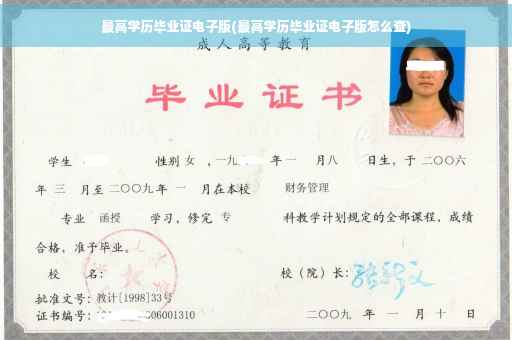 最高学历毕业证电子版(最高学历毕业证电子版怎么查)
成人高等教育
毕业证书
学生 性别 女 ，一九 年 一 月八 日生，于 二〇〇六
年 三 月至 二〇〇九 年 一 月在本校 财务管理
专业 函授 学习，修完 专 科教学计划规定的全部课程，成绩
合格，准予毕业。
校 名： 校（院）长：
批准文号：教计[1998]33号
证书编号： 06001310 二〇〇九 年 一 月 十 日